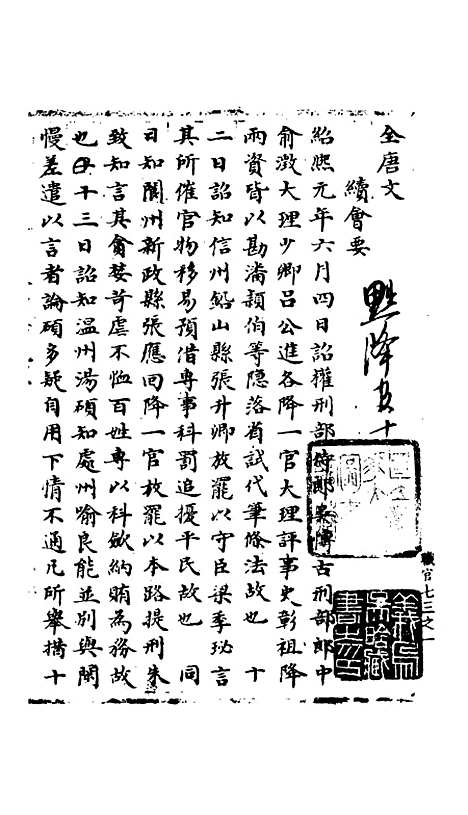 全唐文
續會要
黜降五十
紹熙元年六月四日詔權刑部侍郎吳博古刑部郎中
俞澂大理少卿呂公進各降一官大理評事史彰祖降
兩資皆以勘潘頴伯等隱落省試代筆條法故也 十
二日詔知信州鉛山縣張升卿放罷以守臣梁季珌言
其所催官物移易預借專事科罰追擾平民故也 同
日知閬州新政縣張應回降一官放罷以本路提刑朱
致知言其貪婪苛虐不恤百姓專以科歛納賄為務故
也 十三日詔知温州湯碩知處州喻良能並別與閑
慢差遣以言者論碩多疑自用下情不通凡所舉措十
職官七三之一